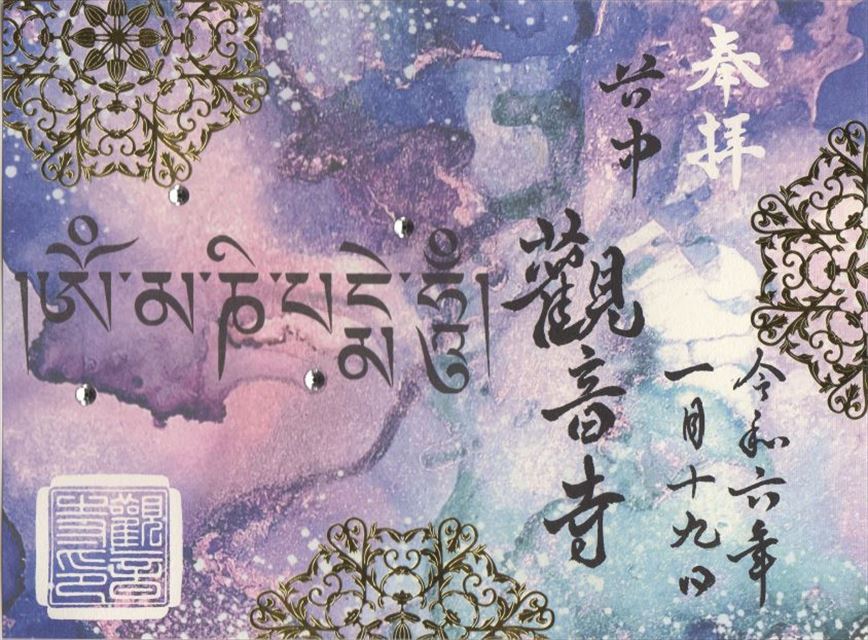 奉拝
令和六年
一月十九日
谷中
觀音寺
།ཨོཾ་མ་ཎི་པདྨེ་ཧཱུྃ།
觀音
寺印